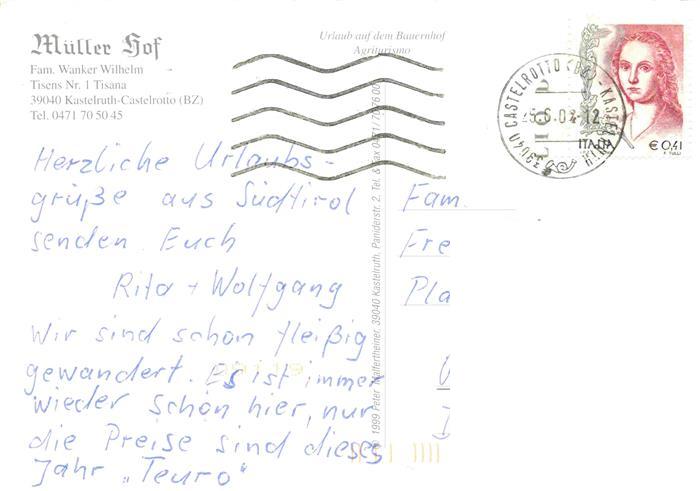 Müller Hof
Fam. Wanker Wilhelm
Tisens Nr. 1 Tisana
39040 Kastelruth-Castelrotto (BZ)
Tel. 0471 70 50 45
Urlaub auf dem Bauernhof
Agriturismo
39040 CASTELROTTO (BZ) - KASTELRUTH
ITALIA
€ 0,41
Herzliche Urlaubs-
grüße aus Südtirol
senden Euch
Rita + Wolfgang
Wir sind schon fleißig
gewandert. Es ist immer
wieder schön hier, nur
die Preise sind dieses
Jahr „Teuro“
© 1999 Peter Malfertheiner, 39040 Kastelruth, Paniderstr. 2, Tel. & Fax 0471 70 76 00
Fam.
Fre
Pla